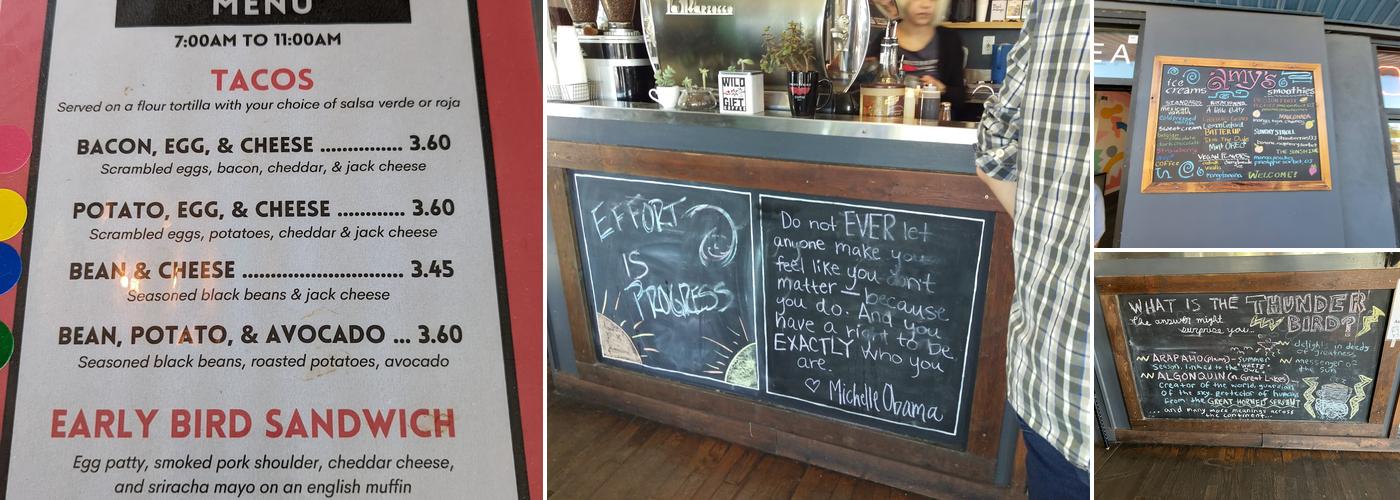 MENU
7:00AM TO 11:00AM
TACOS
Served on a flour tortilla with your choice of salsa verde or roja
BACON, EGG, & CHEESE .............. 3.60
Scrambled eggs, bacon, cheddar, & jack cheese
POTATO, EGG, & CHEESE ............ 3.60
Scrambled eggs, potatoes, cheddar & jack cheese
BEAN & CHEESE ............................ 3.45
Seasoned black beans & jack cheese
BEAN, POTATO, & AVOCADO ... 3.60
Seasoned black beans, roasted potatoes, avocado
EARLY BIRD SANDWICH
Egg patty, smoked pork shoulder, cheddar cheese,
and sriracha mayo on an english muffin
la marzocco
WILD
GIFT
EFFORT
IS
PROGRESS
Do not EVER let
anyone make you
feel like you don't
matter — because
you do. And you
have a right to be
EXACTLY who you
are.
♡ Michelle Obama
EA
amy's
ice
creams
smoothies
STANDARDS
mexican
vanilla
sweet cream
belgian
dark chocolate
strawberry
coffee
BATTER UP
Mint OREO
VEGAN FLAVORS
MANGONADA
SUNDAY STROLL
THE SUNSHINE
WELCOME!
WHAT IS THE THUNDER
BIRD?
the answer might
surprise you...
delights in deeds
of greatness
messenger of
the sun
ARAPAHO (Plains) - summer
season, linked to the
ALGONQUIN (n Great Lakes) -
creator of the world, guardian
of the sky, protector of humans
from the GREAT HORNED SERPENT
... and many more meanings across
the continent...